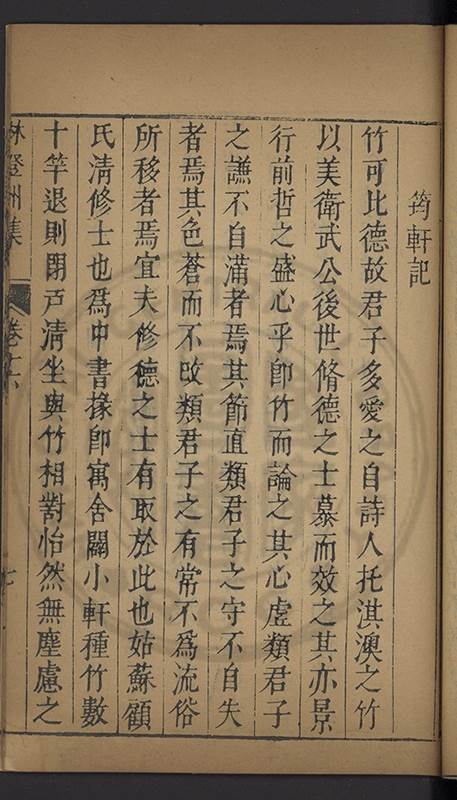 筠軒記
竹可比德故君子多愛之自詩人托淇澳之竹
以美衛武公後世脩德之士慕而效之其亦景
行前哲之盛心乎卽竹而論之其心虛類君子
之謙不自滿者焉其節直類君子之守不自失
者焉其色蒼而不改類君子之有常不爲流俗
所移者焉宜夫修德之士有取於此也姑蘇顧
氏清修士也爲中書掾卽寓舍闢小軒種竹數
十竿退則閉戸清坐與竹相對怡然無塵慮之
林登州集
卷十六
七